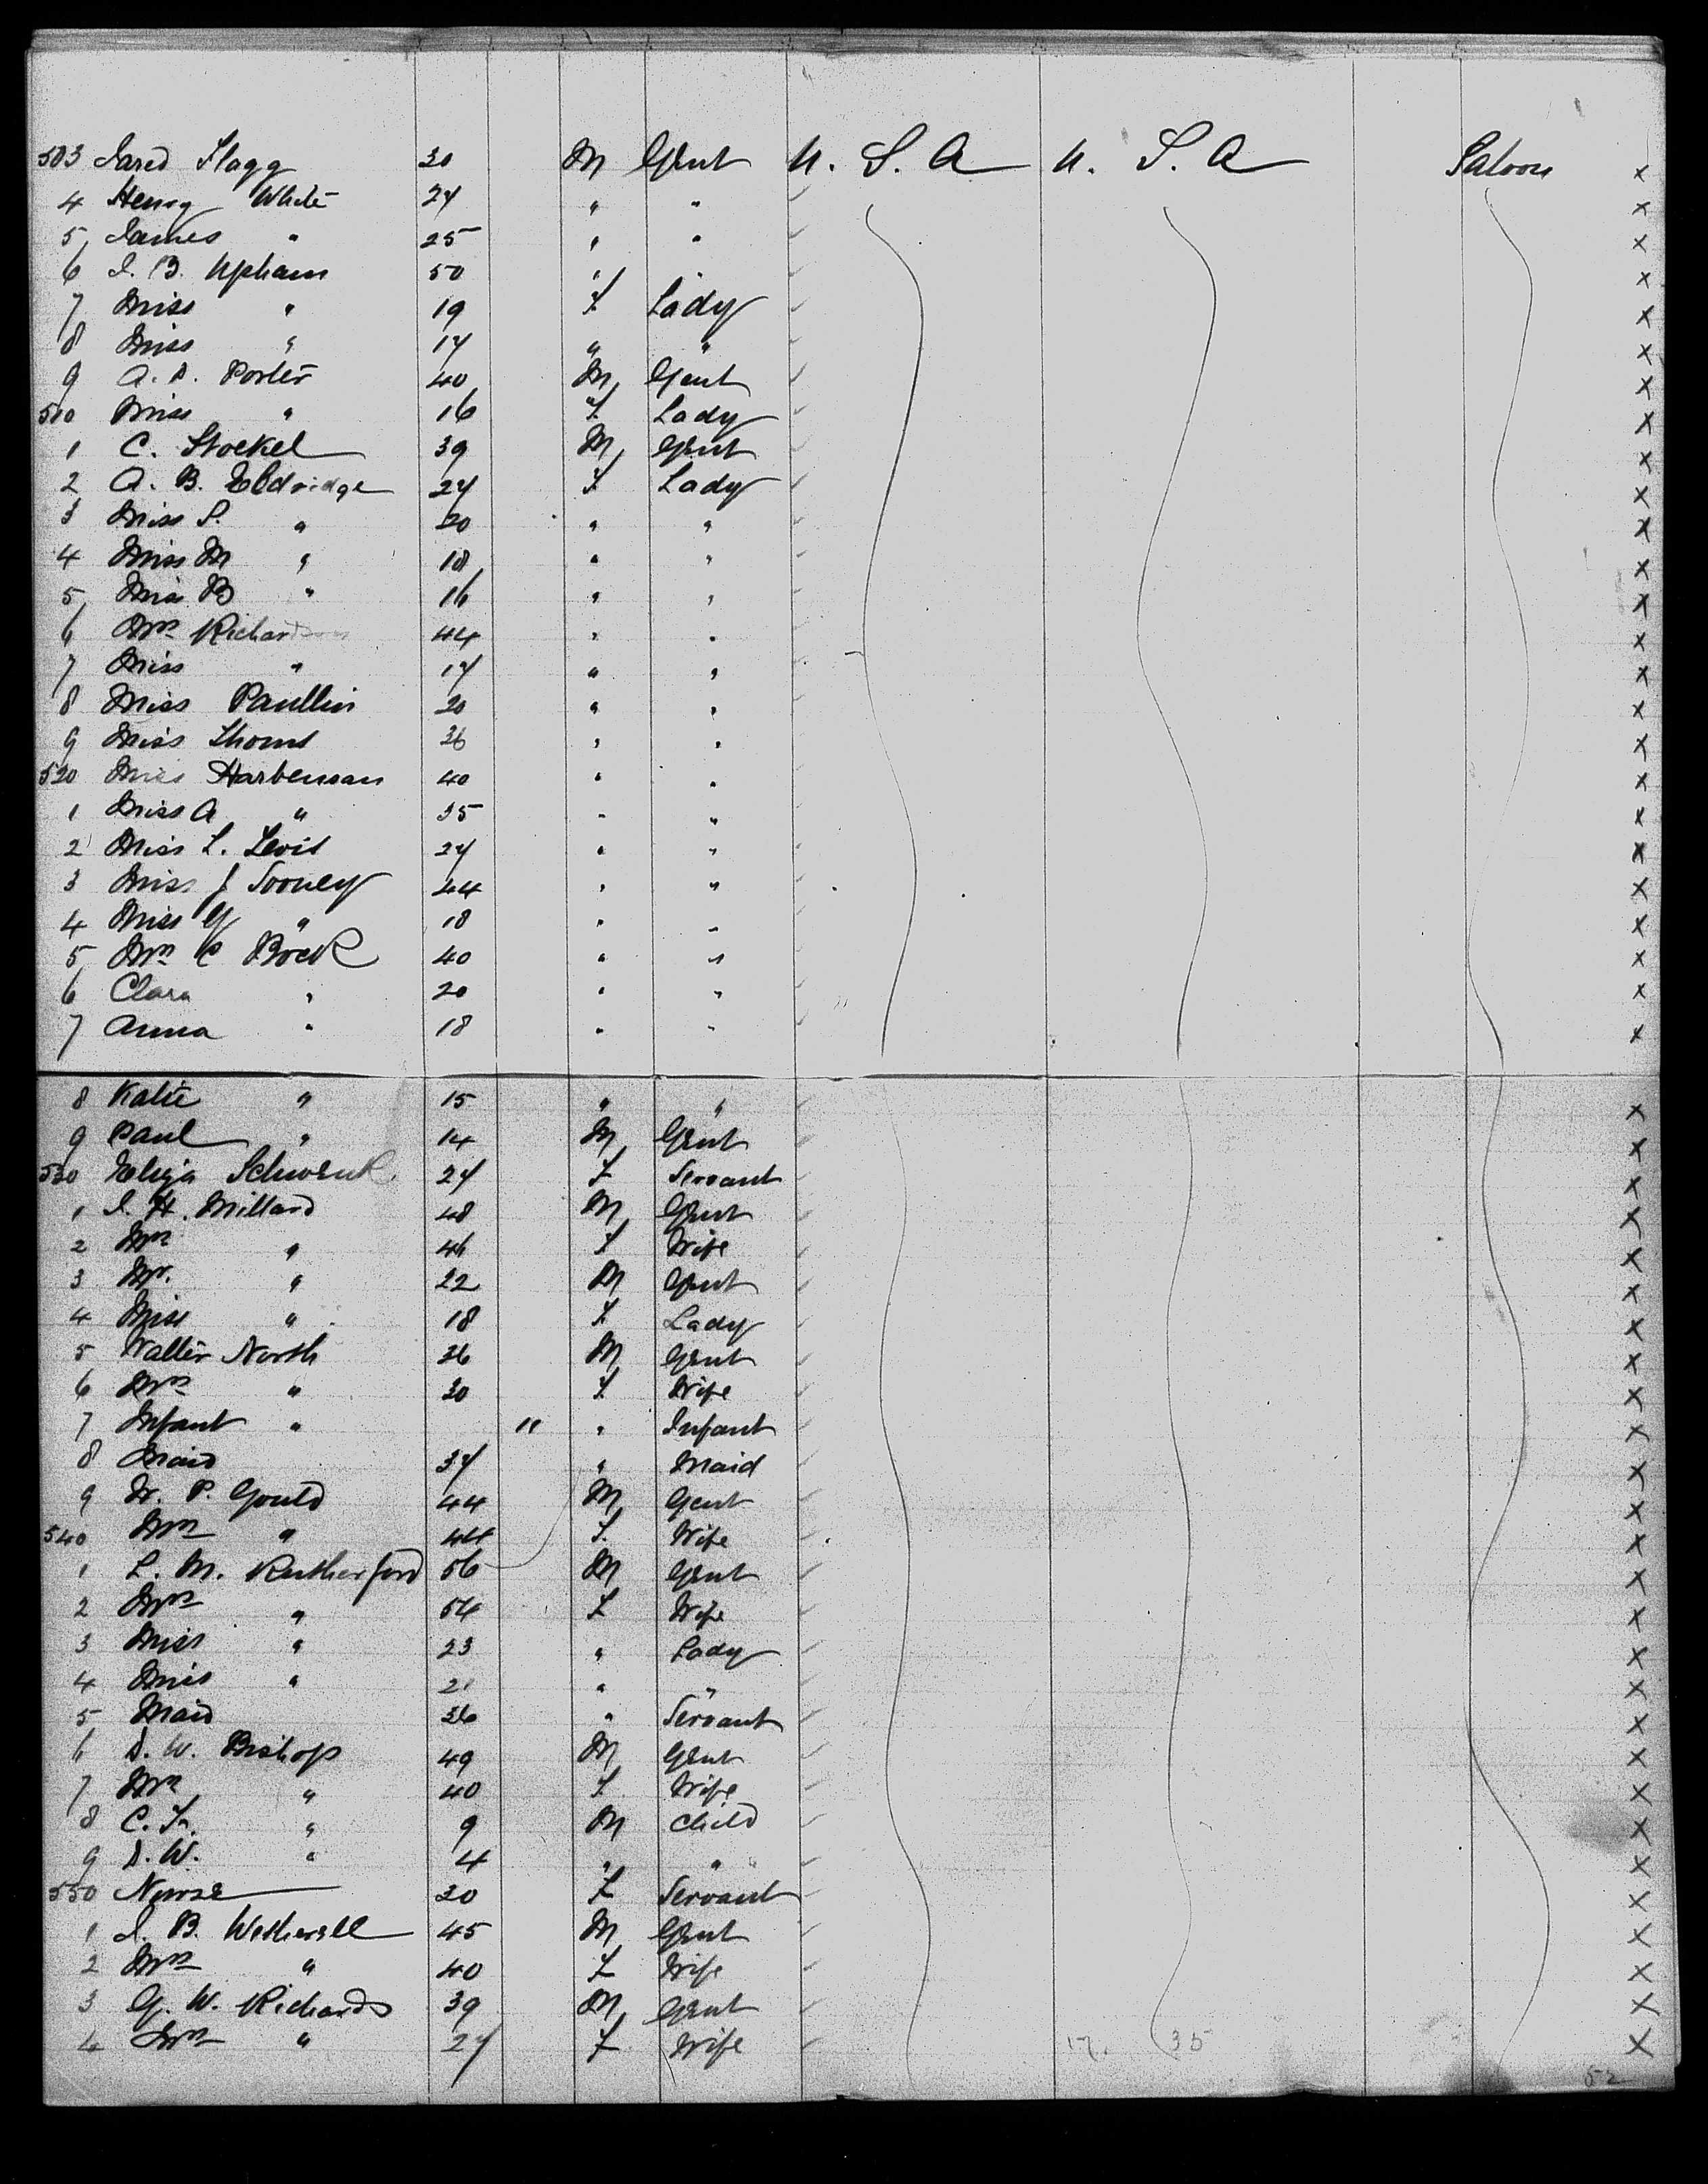 503 Jared Flagg 30 M Gent U. S. A U. S. A Saloon x
4 Henry White 27 " " x
5 James " 25 " " x
6 J. B. Upham 50 " " x
7 Miss " 19 F Lady x
8 Miss " 17 " " x
9 A. S. Porter 40 M Gent x
510 Miss " 16 F Lady x
1 C. Stoekel 39 M Gent x
2 A. B. Eldridge 27 F Lady x
3 Miss S. " 20 " " x
4 Miss M " 18 " " x
5 Miss B " 16 " " x
6 Mrs Richardson 44 " " x
7 Miss " 17 " " x
8 Miss Paullin 20 " " x
9 Miss Thoms 36 " " x
520 Miss Harbenson 40 " " x
1 Miss A " 35 " " x
2 Miss L. Levis 27 " " x
3 Miss J Tooney 44 " " x
4 Miss G " 18 " " x
5 Mrs C Bock 40 " " x
6 Clara " 20 " " x
7 Anna " 18 " " x
8 Katie " 15 " " x
9 Paul " 14 M Gent x
530 Eliza Schwenk 27 F Servant x
1 J. H. Millard 48 M Gent x
2 Mrs " 46 F Wife x
3 Mr. " 22 M Gent x
4 Miss " 18 F Lady x
5 Walter North 36 M Gent x
6 Mrs " 30 F Wife x
7 Infant " 11 " Infant x
8 Maid 37 " Maid x
9 W. P. Gould 44 M Gent x
540 Mrs " 44 F. Wife x
1 L. M. Rutherford 56 M Gent x
2 Mrs " 54 F Wife x
3 Miss " 23 " Lady x
4 Miss " 21 " " x
5 Maid 36 " Servant x
6 D. W. Bishop 49 M Gent x
7 Mrs " 40 F Wife x
8 C. F. " 9 M Child x
9 D. W. " 4 " " x
550 Nurse 20 F Servant x
1 J. B. Wetherell 45 M Gent x
2 Mrs " 40 F Wife x
3 G. W. Richards 39 M Gent x
4 Mrs " 27 F Wife 17. 35 x
52